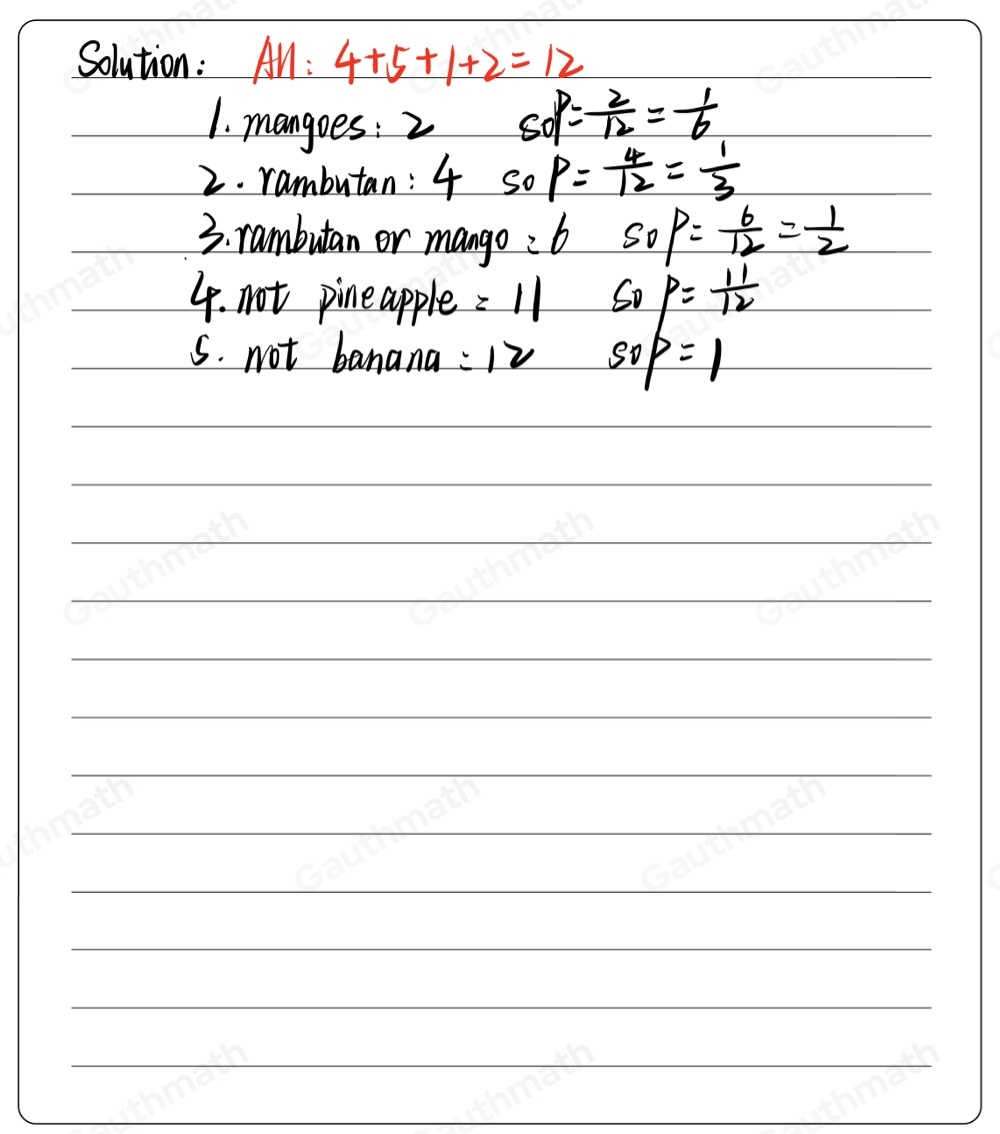 Solution: All: 4+5+1+2=12
1. mangoes: 2 so P=2/12=1/6
2. rambutan: 4 so P=4/12=1/3
3. rambutan or mango: 6 so P=6/12=1/2
4. not pineapple: 11 so P=11/12
5. not banana: 12 so P=1